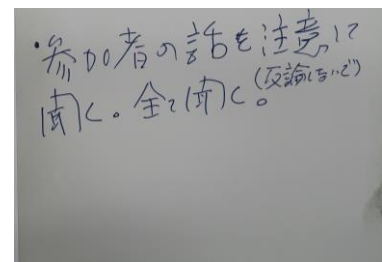 ・参加者の話を注意して
聞く。全て聞く。(反論しないで)